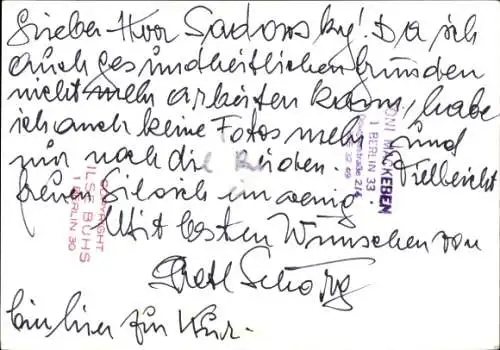 Lieber Herr Sadowsky! Da ich
auch gesundheitlichen Gründen
nicht mehr arbeiten kann, habe
ich auch keine Fotos mehr und
nur noch die beiden. Vielleicht
freuen Sie sich ein wenig
Mit besten Wünschen von
bin hier zur Kur.
TONI MACKEBEN
1 BERLIN 33
COPYRIGHT
ILSE BUHS
1 BERLIN 30